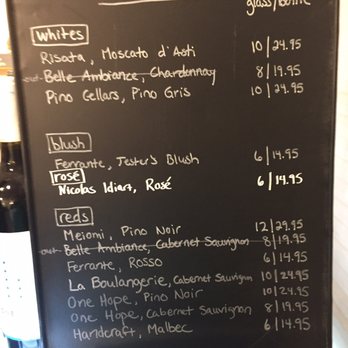 glass/bottle
whites
Risata, Moscato d'Asti 10/24.95
out Belle Ambiance, Chardonnay 8/19.95
Pino Cellars, Pino Gris 10/24.95
blush
Ferrante, Jester's Blush 6/14.95
rosé
Nicolas Idiart, Rosé 6/14.95
reds
Meiomi, Pino Noir 12/29.95
out Belle Ambiance, Cabernet Sauvignon 8/19.95
Ferrante, Rosso 6/14.95
La Boulangerie, Cabernet Sauvignon 10/24.95
One Hope, Pino Noir 10/24.95
One Hope, Cabernet Sauvignon 8/19.95
Handcraft, Malbec 6/14.95